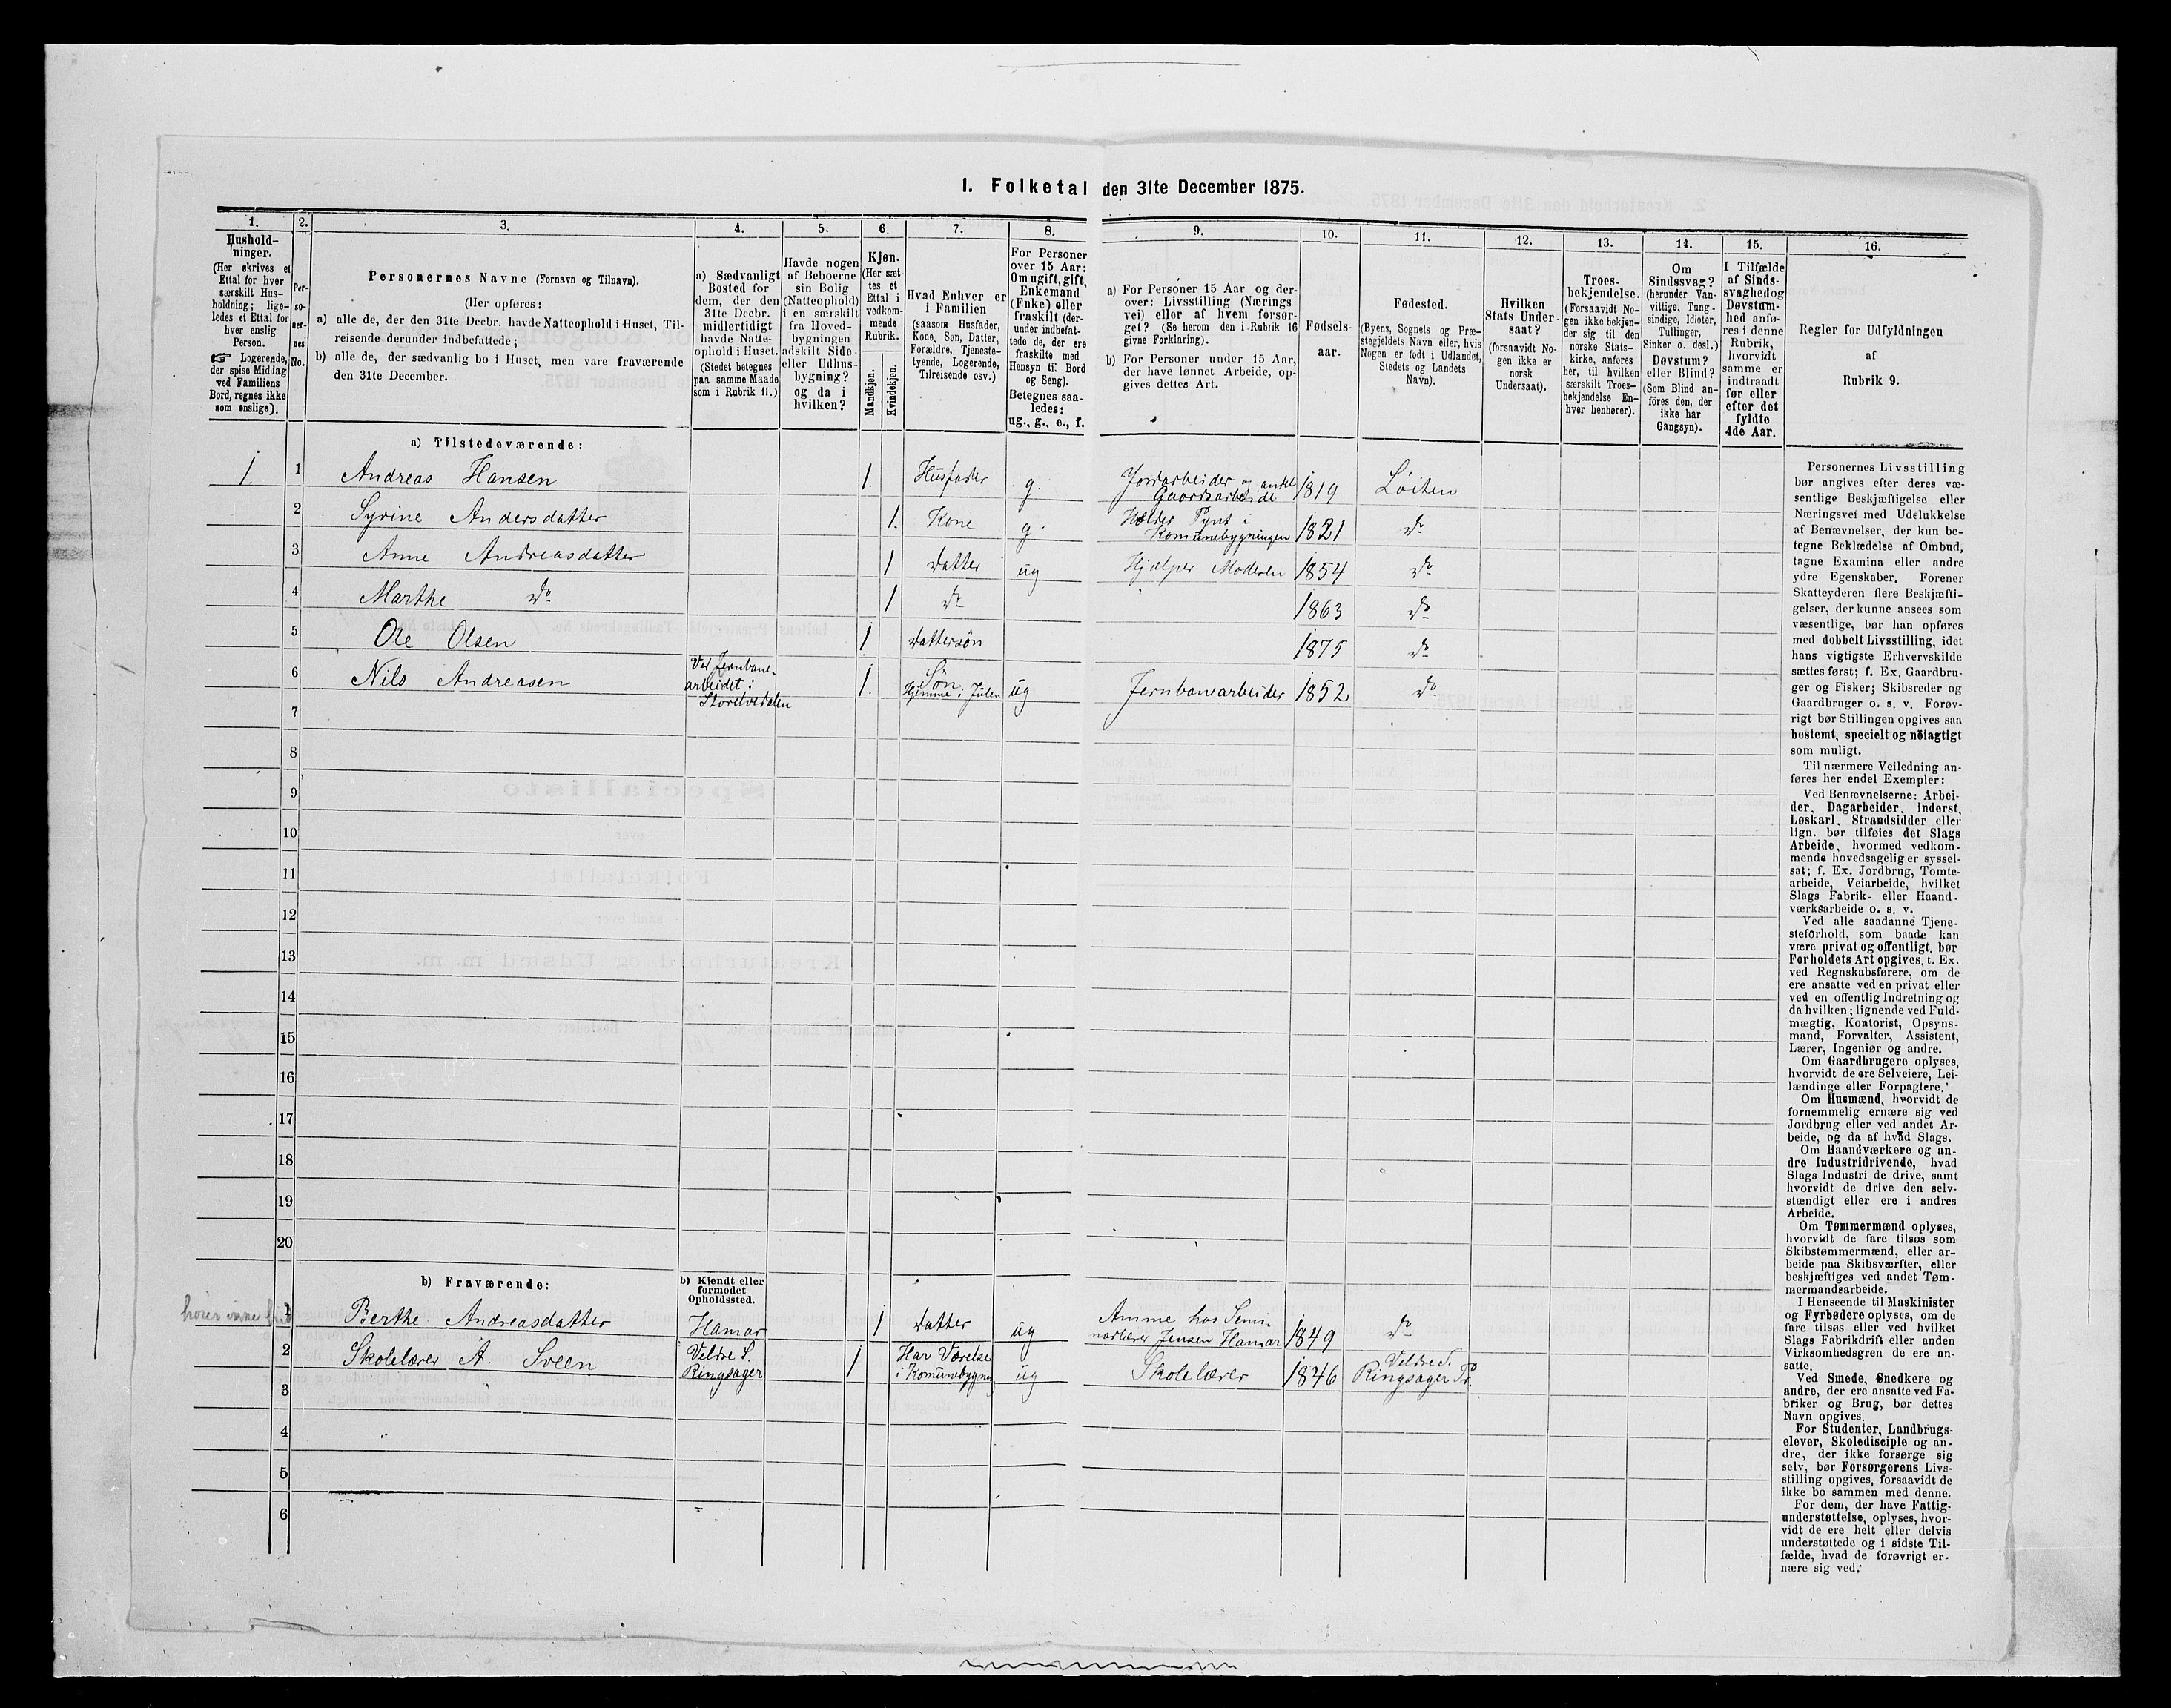 1. Folketal den 31te December 1875.
1. 2. 3. 4. 5. 6. 7. 8. 9. 10. 11. 12. 13. 14. 15. 16.
Hushold-
ninger.
(Her skrives et
Ettal for hver
særskilt Hus-
holdning; lige-
ledes et Ettal for
hver enslig
Person.
☞ Logerende,
der spise Middag
ved Familiens
Bord, regnes ikke
som enslige).
Per-
so-
ner-
nes
No.
Personernes Navne (Fornavn og Tilnavn).
(Her opføres:
a) alle de, der den 31te Decbr. havde Natteophold i Huset, Til-
reisende derunder indbefattede;
b) alle de, der sædvanlig bo i Huset, men vare fraværende
den 31te December.
a) Sædvanligt
Bosted for
dem, der den
31te Decbr.
midlertidigt
havde Natte-
ophold i Huset.
(Stedet betegnes
paa samme Maade
som i Rubrik 11.)
Havde nogen
af Beboerne
sin Bolig
(Natteophold)
i en særskilt
fra Hoved-
bygningen
adskilt Side-
eller Udhus-
bygning?
og da i
hvilken?
Kjøn.
(Her sæt
tes et
Ettal i
vedkom-
mende
Rubrik.
Mandkjøn.
Kvindekjøn.
Hvad Enhver er
i Familien
(saasom Husfader,
Kone, Søn, Datter,
Forældre, Tjeneste-
tyende, Logerende,
Tilreisende osv.)
For Personer
over 15 Aar:
Om ugift, gift,
Enkemand
(Enke) eller
fraskilt (der-
under indbefat-
tede de, der ere
fraskilte med
Hensyn til Bord
og Seng).
Betegnes saa-
ledes:
ug., g., e., f.
a) For Personer 15 Aar og der-
over: Livsstilling (Nærings
vei) eller af hvem forsør-
get? (Se herom den i Rubrik 16
givne Forklaring).
b) For Personer under 15 Aar,
der have lønnet Arbeide, op-
gives dettes Art.
Fødsels-
aar.
Fødested.
(Byens, Sognets og Præ-
stegjeldets Navn eller, hvis
Nogen er født i Udlandet,
Stedets og Landets
Navn).
Hvilken
Stats Under-
saat?
(forsaavidt No-
gen ikke er
norsk
Undersaat).
Troes-
bekjendelse.
(Forsaavidt No-
gen ikke bekjen-
der sig til den
norske Stats-
kirke, anføres
her, til hvilken
særskilt Troes-
bekjendelse En-
hver henhører).
Om
Sindssvag?
(herunder Van-
vittige, Tung-
sindige, Idioter,
Tullinger,
Sinker o. desl.)
Døvstum?
eller Blind?
(Som Blind an-
føres den, der
ikke har
Gangsyn).
I Tilfælde
af Sinds-
svaghed og
Døvstum-
hed anfø-
res i denne
Rubrik,
hvorvidt
samme er
indtraadt
før eller
efter det
fyldte
4de Aar.
Regler for Udfyldningen
af
Rubrik 9.
a) Tilstedeværende:
1. 1 Andreas Hansen 1. Husfader g. Jordarbeider og andet Gaardsarbeide 1819 Løiten
2 Syrine Andersdatter 1. Kone g. Holder Pynt i Komunebygningen 1821 do
3 Anne Andreasdatter 1 datter ug Hjælper Moderen 1854 do
4 Marthe do 1 do 1863 do
5 Ole Olsen 1 dattersøn 1875 do
6 Nils Andreasen Ved Jernbane-arbeidet i Storelvedalen 1. Søn Hjemme i Julen ug Jernbanearbeider 1852 do
7
8
9
10
11
12
13
14
15
16
17
18
19
20
b) Fraværende:
b) Kjendt eller
formodet
Opholdssted.
1 Berthe Andreasdatter Hamar 1 datter ug Amme hos Semi-narlærer Jensen Hamar 1849 do
2 Skolelærer A. Sveen Veldre S. Ringsager 1 Har Værelse i Komunebygning ug Skolelærer 1846 Veldre S. Ringsager Pr.
3
4
5
6
Personernes Livsstilling
bør angives efter deres væ-
sentlige Beskjæftigelse eller
Næringsvei med Udelukkelse
af Benævnelser, der kun be-
tegne Beklædelse af Ombud,
tagne Examina eller andre
ydre Egenskaber. Forener
Skatteyderen flere Beskjæfti-
gelser, der kunne ansees som
væsentlige, bør han opføres
med dobbelt Livsstilling, idet
hans vigtigste Erhvervskilde
sættes først; f. Ex. Gaardbru-
ger og Fisker; Skibsreder og
Gaardbruger o. s. v. Forøv-
rigt bør Stillingen opgives saa
bestemt, specielt og nöiagtigt
som muligt.
Til nærmere Veiledning an-
føres her endel Exempler:
Ved Benævnelserne: Arbei-
der, Dagarbeider, Inderst,
Løskarl, Strandsidder eller
lign. bør tilføies det Slags
Arbeide, hvormed vedkom-
mende hovedsagelig er syssel-
sat; f. Ex. Jordbrug, Tomte-
arbeide, Veiarbeide, hvilket
Slags Fabrik- eller Haand-
værksarbeide o. s. v.
Ved alle saadanne Tjene-
steforhold, som baade kan
være privat og offentligt, bør
Forholdets Art opgives, t. Ex.
ved Regnskabsførere, om de
ere ansatte ved en privat eller
ved en offentlig Indretning og
da hvilken; lignende ved Fuld-
mægtig, Kontorist, Opsyns-
mand, Forvalter, Assistent,
Lærer, Ingeniør og andre.
Om Gaardbrugere oplyses,
hvorvidt de ere Selveiere, Lei-
lændinge eller Forpagtere.
Om Husmænd, hvorvidt de
fornemmelig ernære sig ved
Jordbrug eller ved andet Ar-
beide, og da af hvad Slags.
Om Haandværkere og an-
dre Industridrivende, hvad
Slags Industri de drive, samt
hvorvidt de drive den selv-
stændigt eller ere i andres
Arbeide.
Om Tømmermænd oplyses,
hvorvidt de fare tilsøs som
Skibstømmermænd, eller ar-
beide paa Skibsværfter, eller
beskjæftiges ved andet Tøm-
mermandsarbeide.
I Henseende til Maskinister
og Fyrbødere oplyses, om de
fare tilsøs eller ved hvilket
Slags Fabrikdrift eller anden
Virksomhedsgren de ere an-
satte.
Ved Smede, Snedkere og
andre, der ere ansatte ved Fa-
briker og Brug, bør dettes
Navn opgives.
For Studenter, Landbrugs-
elever, Skoledisciple og an-
dre, der ikke forsørge sig
selv, bør Forsørgerens Livs-
stilling opgives, forsaavidt de
ikke bo sammen med denne.
For dem, der have Fattig-
understøttelse, oplyses, hvor-
vidt de ere helt eller delvis
understøttede og i sidste Til-
fælde, hvad de forøvrigt er-
nære sig ved.